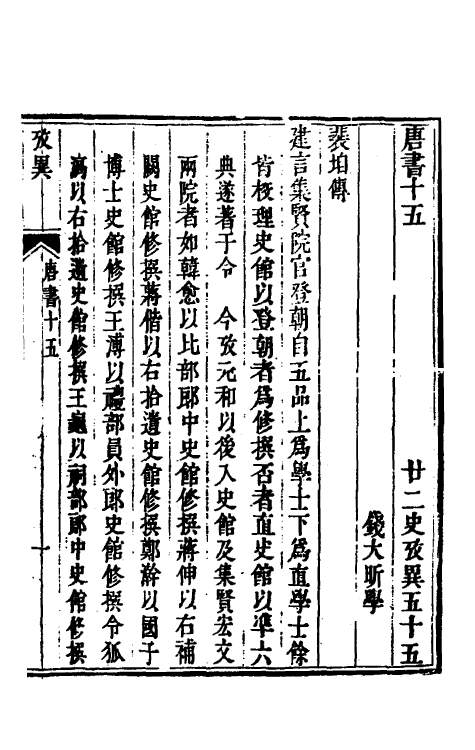 唐書十五　廿二史攷異五十五
錢大昕學
裴垍傳
建言集賢院官登朝自五品上爲學士下爲直學士餘
皆校理史館以登朝者爲修撰否者直史館以準六
典遂著于令　今攷元和以後入史館及集賢宏文
兩院者如韓愈以比部郎中史館修撰蔣伸以右補
闕史館修撰蔣偕以右拾遺史館修撰鄭澣以國子
博士史館修撰王溥以禮部員外郎史館修撰令狐
滈以右拾遺史館修撰王龜以祠部郎中史館修撰
攷異　唐書十五　一